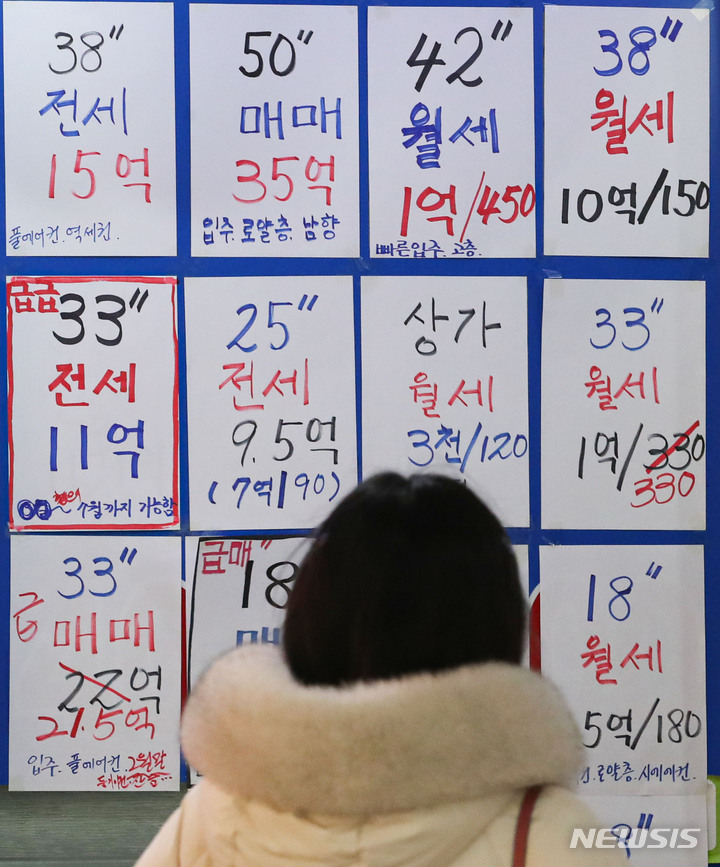 38"
전세
15억
풀에어컨. 역세권.
50"
매매
35억
입주. 로얄층. 남향
42"
월세
1억/450
빠른입주. 고층.
38"
월세
10억/150
급급
33"
전세
11억
협의
7월까지 가능함
25"
전세
9.5억
(7억/90)
상가
월세
3천/120
33"
월세
1억/330
330
33"
급
매매
22억
21.5억
입주. 풀에어컨. 2월말
급매"
18
매매
18"
월세
5억/180
로얄층. 시에에컨.
NEWSIS